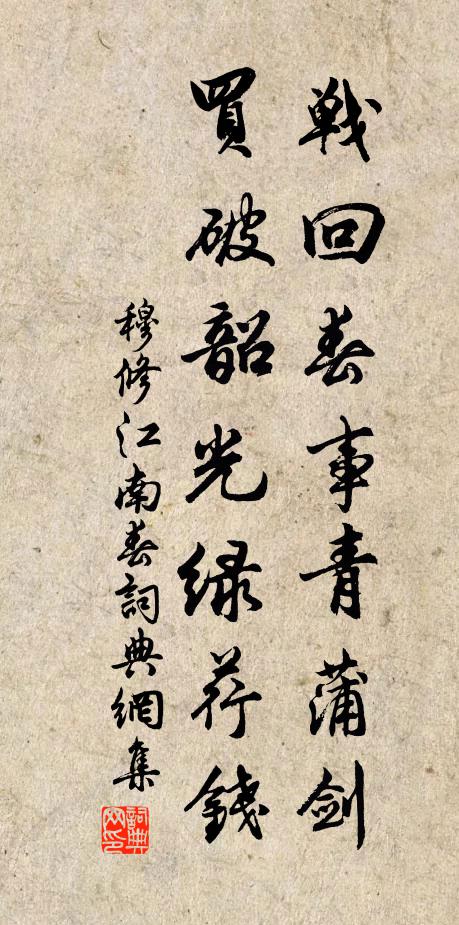 戦回春事青蒲剑
買破韶光绿荇錢
穆修江南春詞典網集
詞典网印